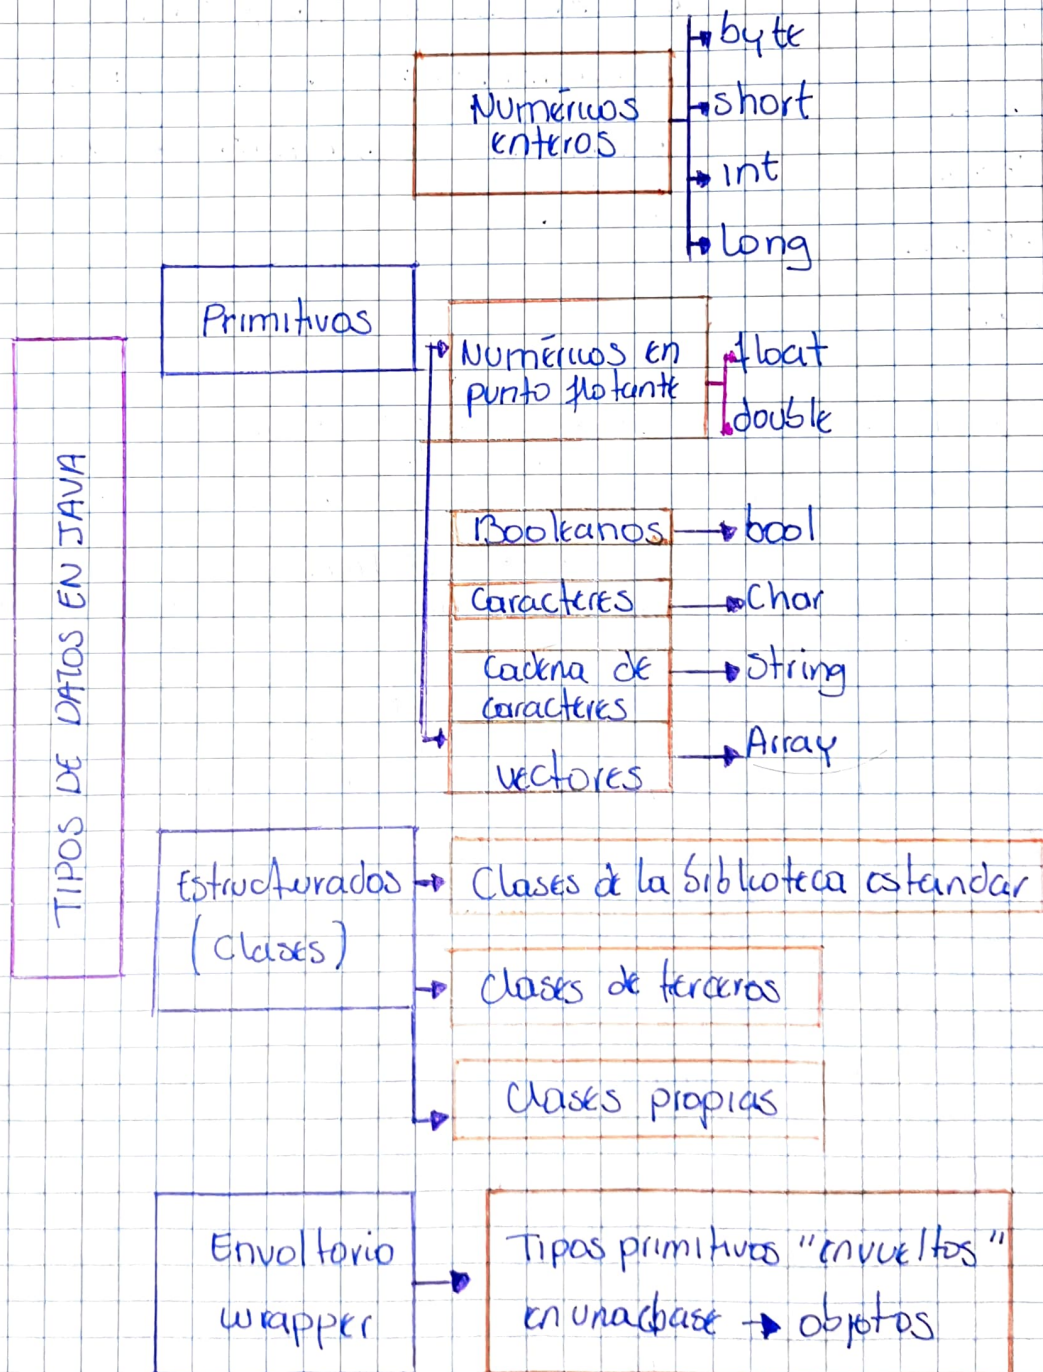 TIPOS DE DATOS EN JAVA
Primitivos
Numéricos
enteros
byte
short
int
long
Numéricos en
punto flotante
float
double
Booleanos
bool
Caracteres
Char
Cadena de
caracteres
String
vectores
Array
Estructurados
(Clases)
Clases de la biblioteca estandar
Clases de terceros
Clases propias
Envoltorio
wrapper
Tipos primitivos "envueltos"
en una clase → objetos